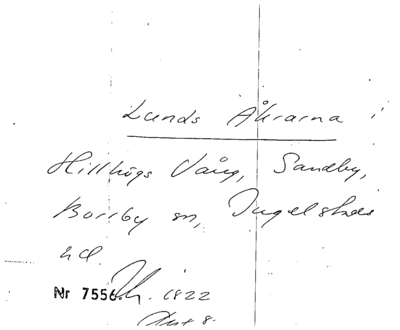 Lunds Åkrarna i
Hillhögs Vång, Sandby,
Borrby sn, Ingelstads
hd.
Nr 7556. 1822